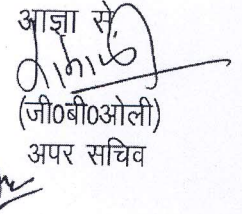 आज्ञा से,
(जी0बी0ओली)
अपर सचिव